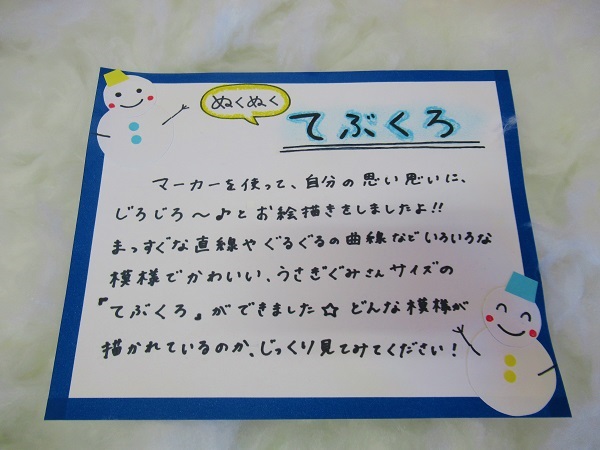 ぬくぬく
てぶくろ
マーカーを使って、自分の思い思いに、
じろじろ〜♪とお絵描きをしましたよ!!
まっすぐな直線やぐるぐるの曲線などいろいろな
模様でかわいい、うさぎぐみさんサイズの
『てぶくろ』ができました☆どんな模様が
描かれているのか、じっくり見てみてください!